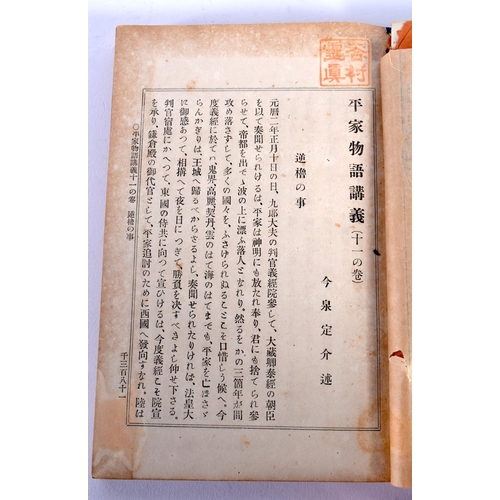 谷村
靈眞
平家物語講義(十一の卷)
今泉定介述
逆櫓の事
元曆二年正月十日の日、九郎大夫の判官義經院參して、大藏卿泰經の朝臣
を以て奏聞せられけるは、平家は神明にも放たれ奉り、君にも捨てられ參
らせて、帝都を出で、波の上に漂ふ落人となれり、然るをかの三箇年が間
攻め落さずして、多くの國々を、ふさげられぬることこそ口惜しう候へ、今
度義經に於ては、鬼界、高麗、契丹、雲のはて海のはてまでも、平家を亡ぼさざ
らんかぎりは、王城へ歸るべからざるよし、奏聞せられたりければ、法皇大
に御感あつて、相搆へて夜を日につぎて、勝負を決すべきよし仰せ下さる。
判官宿處にかへつて、東國の侍共に向つて宣ひけるは、今度義經こそ院宣
を承り、鎌倉殿の御代官として、平家追討のために西國へ發向すなれ、陸は
○平家物語講義十一の卷 逆櫓の事
千三百八十一